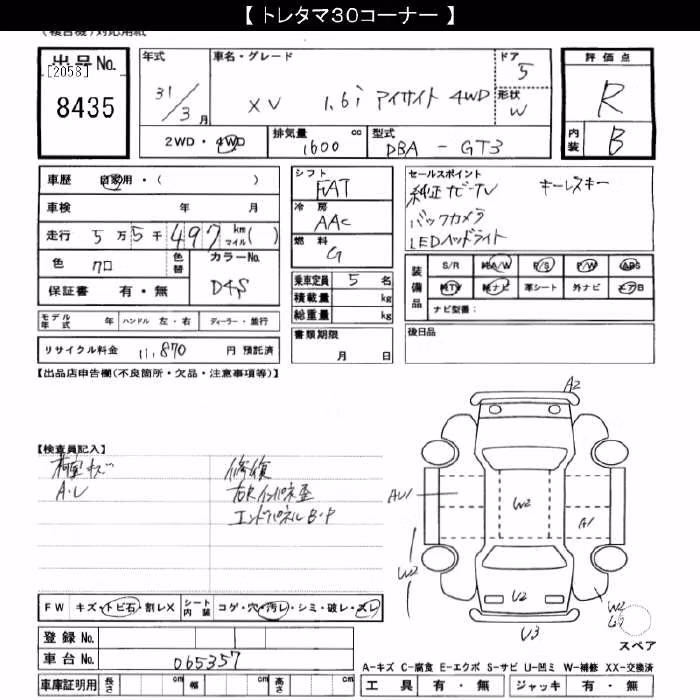 【 トレタマ30コーナー 】
(複合機)対応用紙
出品No.
[2058]
8435
年式
31/3月
車名・グレード
XV 1.6i アイサイト 4WD
ドア
5
形状
W
評価点
R
内装
B
2WD・4WD
排気量
1600 cc
型式
DBA - GT3
車歴 自家用・( )
車検 年 月
走行 5万5千497 km マイル( )
色 クロ
色替
カラーNo.
D4S
保証書 有・無
モデル年式 年 ハンドル 左・右 ディーラー・並行
リサイクル料金 11,870 円 預託済
シフト
FAT
冷房
AAC
燃料
G
乗車定員 5 名
積載量 kg
総重量 kg
書類期限
月 日
セールスポイント
純正ナビ・TV キーレスキー
バックカメラ
LEDヘッドライト
装備品
S/R 純A/W P/S P/W ABS
純TV 純ナビ 革シート 外ナビ エアB
ナビ型番:
後日品
【出品店申告欄(不良箇所・欠品・注意事項等)】
【検査員記入】
荷室キズ
A・U
修復
右Rインパネ歪
エンドパネルB・P
A2
AU1
W2
A1
W2
U2
W2
U3
スペア
FW キズ・トビ石・割レX
シート内装 コゲ・穴・汚レ・シミ・破レ・スレ
登録No.
車台No. 065357
車庫証明用 長さ cm 幅 cm 高さ cm
A-キズ C-腐食 E-エクボ S-サビ U-凹ミ W-補修 XX-交換済
工具 有・無 ジャッキ 有・無